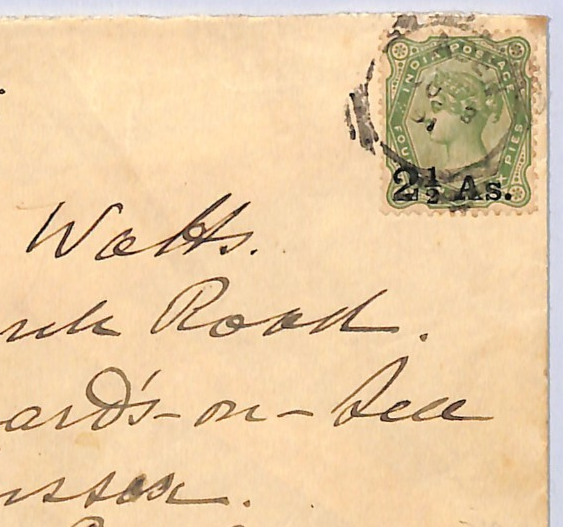 INDIA POSTAGE
2½ As.
Watts.
Road.
ard's-on-Sea
ussex.